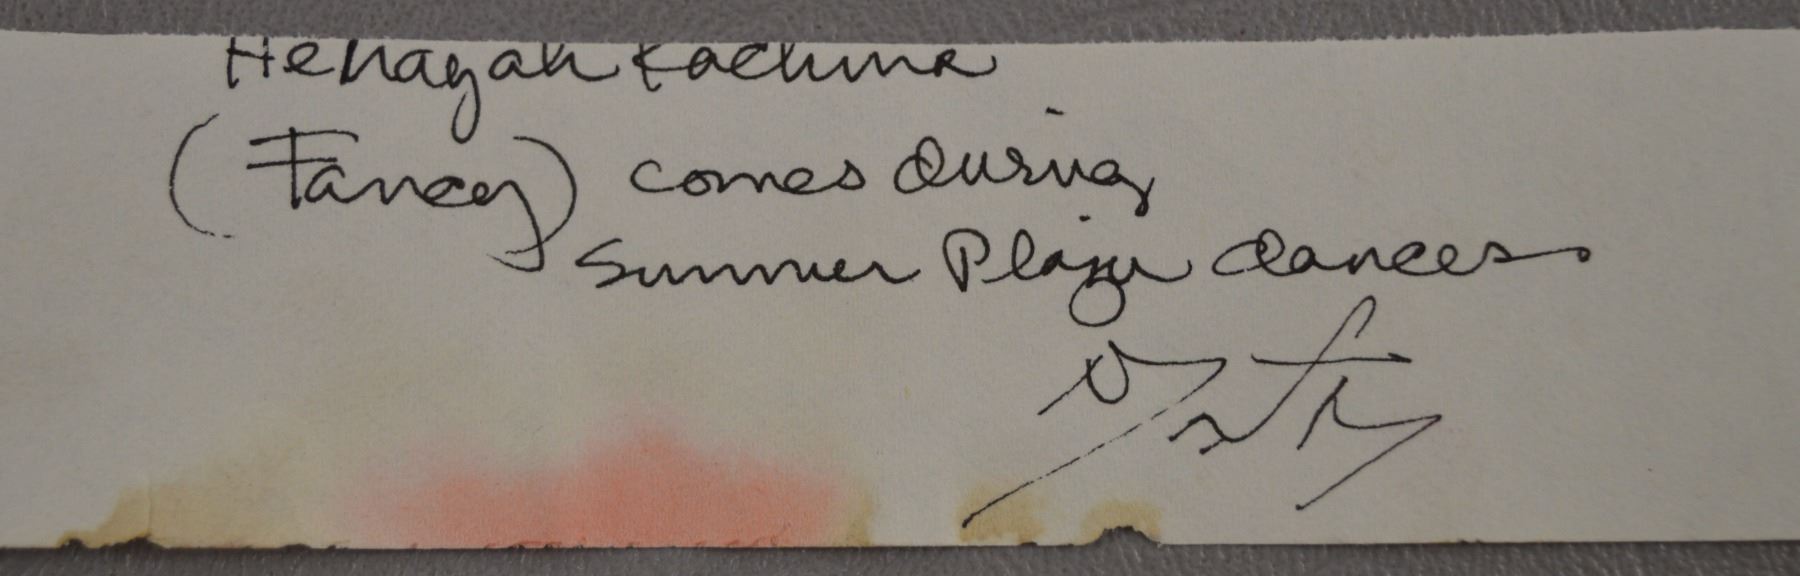 Hehagah Kachina
(Fancy) comes during
Summer Plaza dances